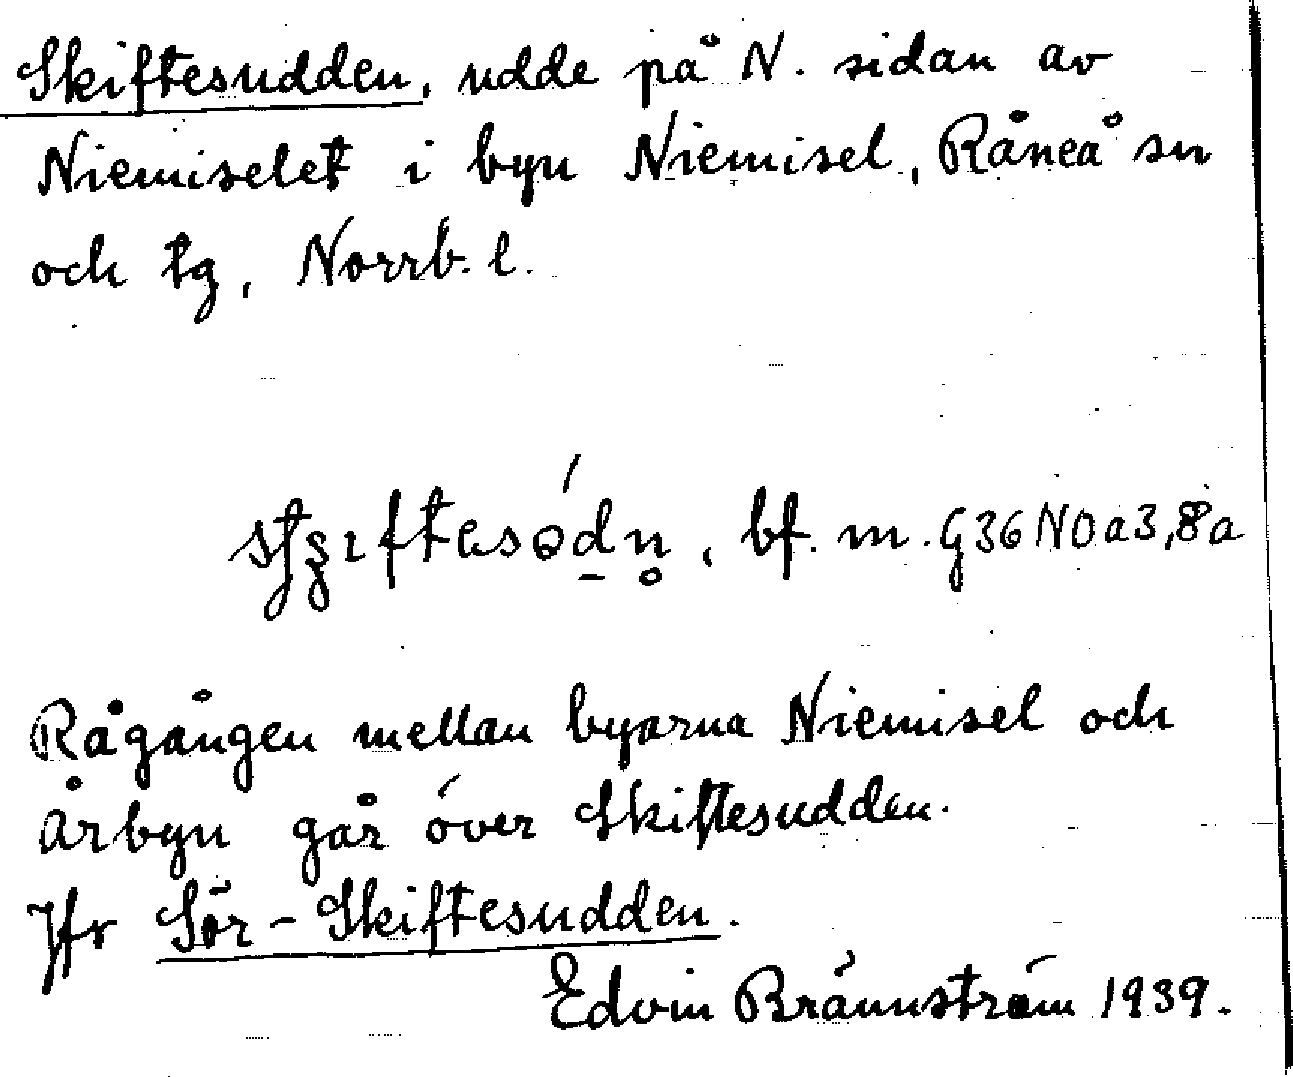 Skiftesudden, udde på N. sidan av
Niemiselet i byn Niemisel, Råneå sn
och tg, Norrb. l.
bf. m. G36NOa3,8a
Rågången mellan byarna Niemisel och
Årbyn går över Skiftesudden.
Jfr Sör-Skiftesudden.
Edvin Brännström 1939.